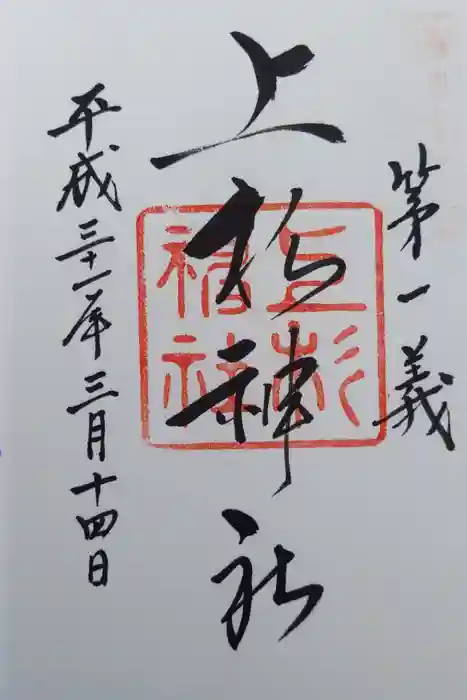 第一義
上杉神社
上杉神社
平成三十一年三月十四日